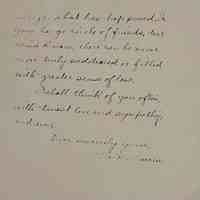 what has happened in
your large circle of friends, but
there can be none
more truly saddened or filled
with greater sense of loss.
I shall think of you often,
with truest love and sympathy,
and am
Ever sincerely yours,